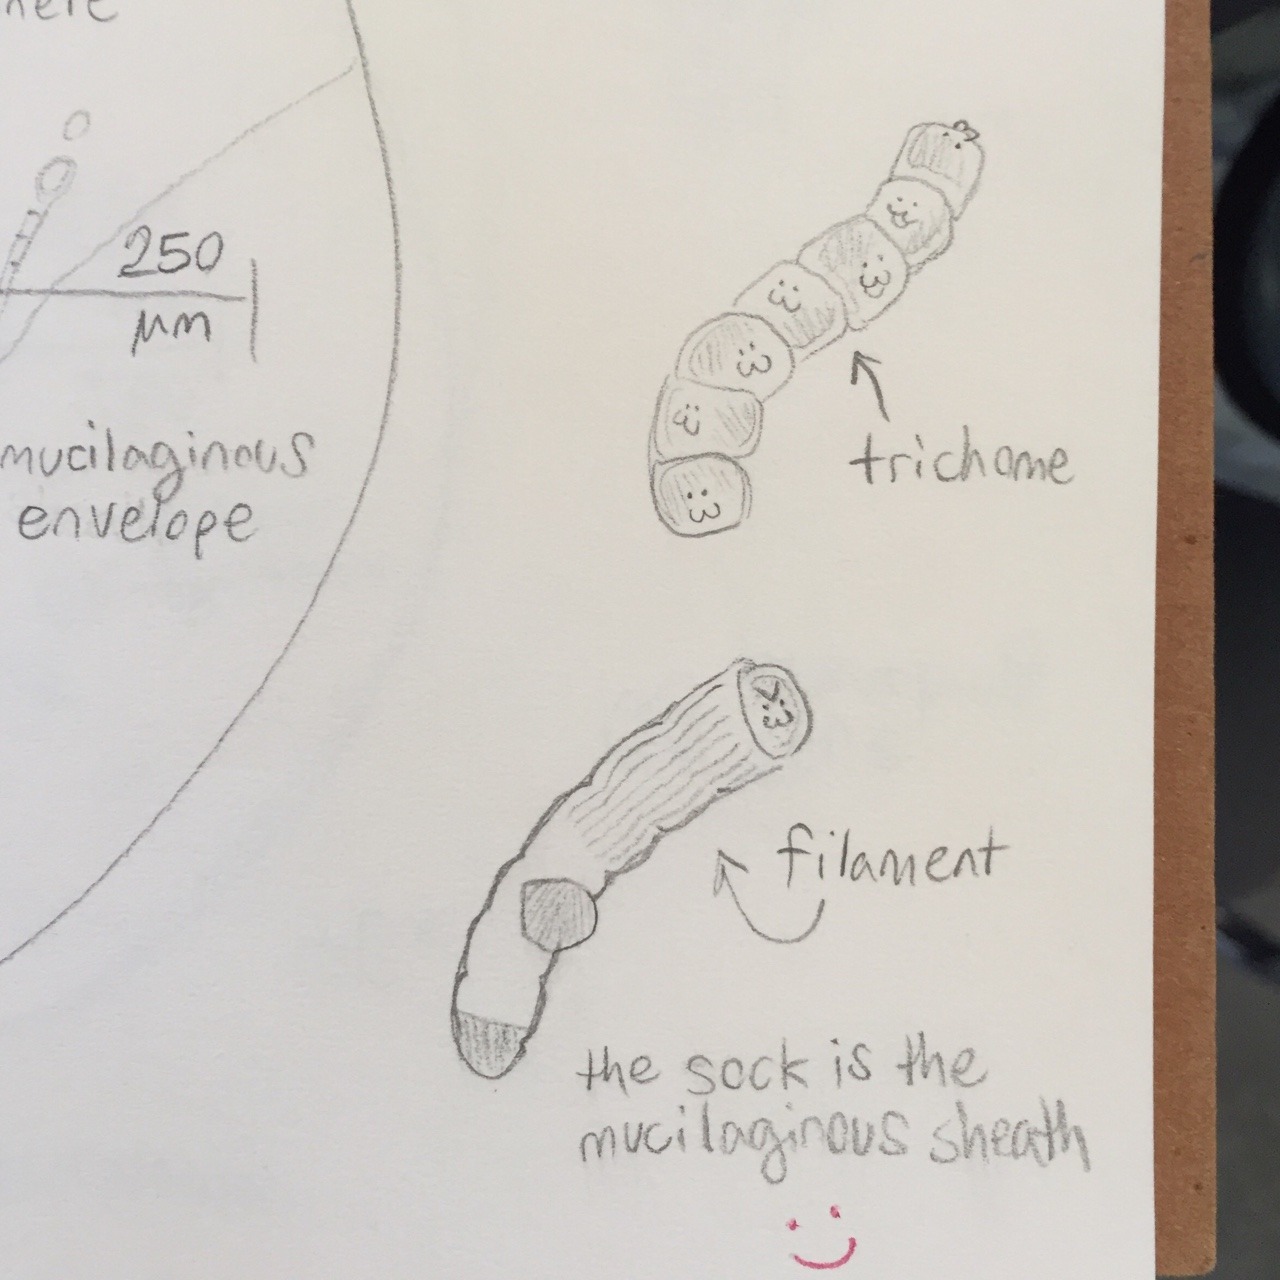 250
µm
mucilaginous
envelope
trichome
filament
the sock is the
mucilaginous sheath